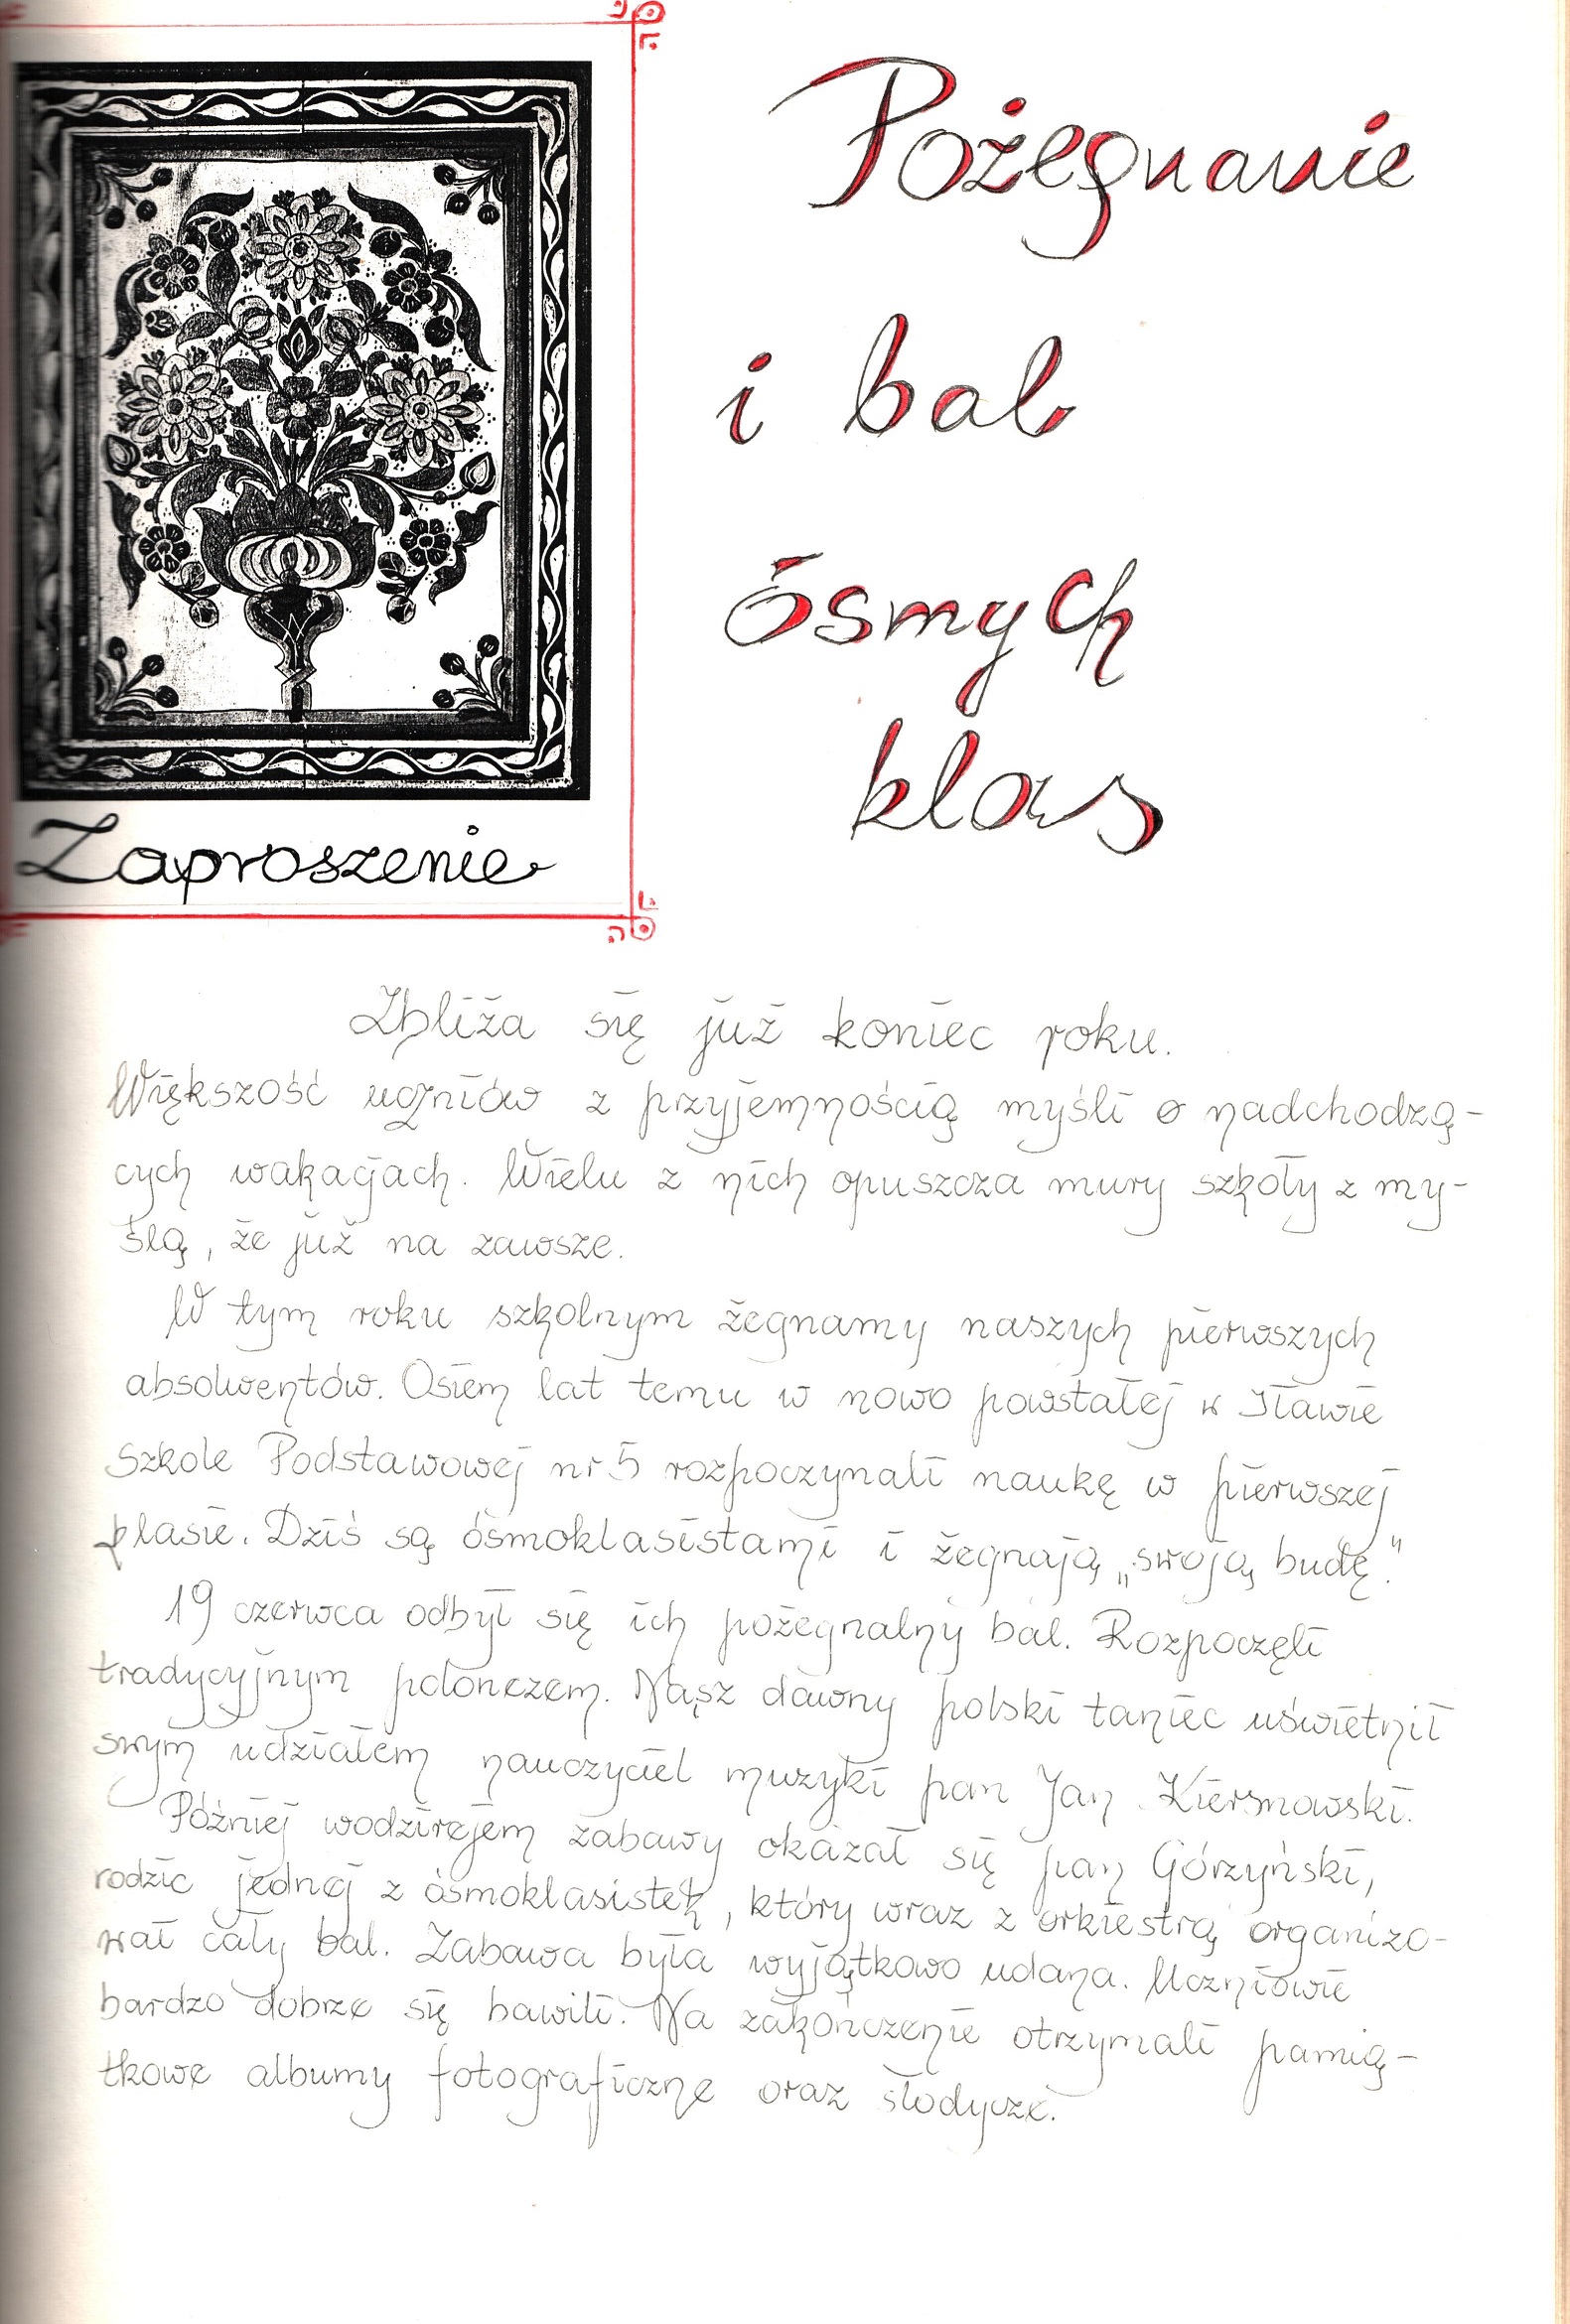 Zaproszenie
Pożegnanie
i bal
ósmych
klas
Zbliża się już koniec roku.
Większość uczniów z przyjemnością myśli o nadchodzą-
cych wakacjach. Wielu z nich opuszcza mury szkoły z my-
ślą, że już na zawsze.
W tym roku szkolnym żegnamy naszych pierwszych
absolwentów. Osiem lat temu w nowo powstałej w Iławie
Szkole Podstawowej nr 5 rozpoczynali naukę w pierwszej
klasie. Dziś są ósmoklasistami i żegnają „swoją budę."
19 czerwca odbył się ich pożegnalny bal. Rozpoczęli
tradycyjnym polonezem. Nasz dawny polski taniec uświetnił
swym udziałem nauczyciel muzyki pan Jan Kiersnowski.
Później wodzirejem zabawy okazał się pan Górzyński,
rodzic jednej z ósmoklasistek, który wraz z orkiestrą organizo-
wał cały bal. Zabawa była wyjątkowo udana. Uczniowie
bardzo dobrze się bawili. Na zakończenie otrzymali pamią-
tkowe albumy fotograficzne oraz słodycze.